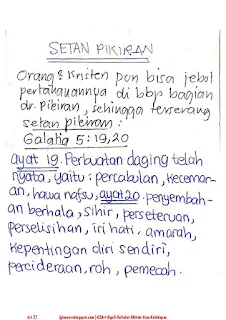 SETAN PIKIRAN
Orang2 Kristen pun bisa jebol
pertahanannya di bbp bagian
dr. Pikiran, sehingga terserang
setan pikiran :
Galatia 5 : 19,20
ayat 19. Perbuatan daging telah
nyata, yaitu : percabulan, kecemar-
an, hawa nafsu, ayat 20. penyembah-
an berhala, sihir, perseteruan,
perselisihan, iri hati, amarah,
kepentingan diri sendiri,
percideraan, roh, pemecah.
Art 27